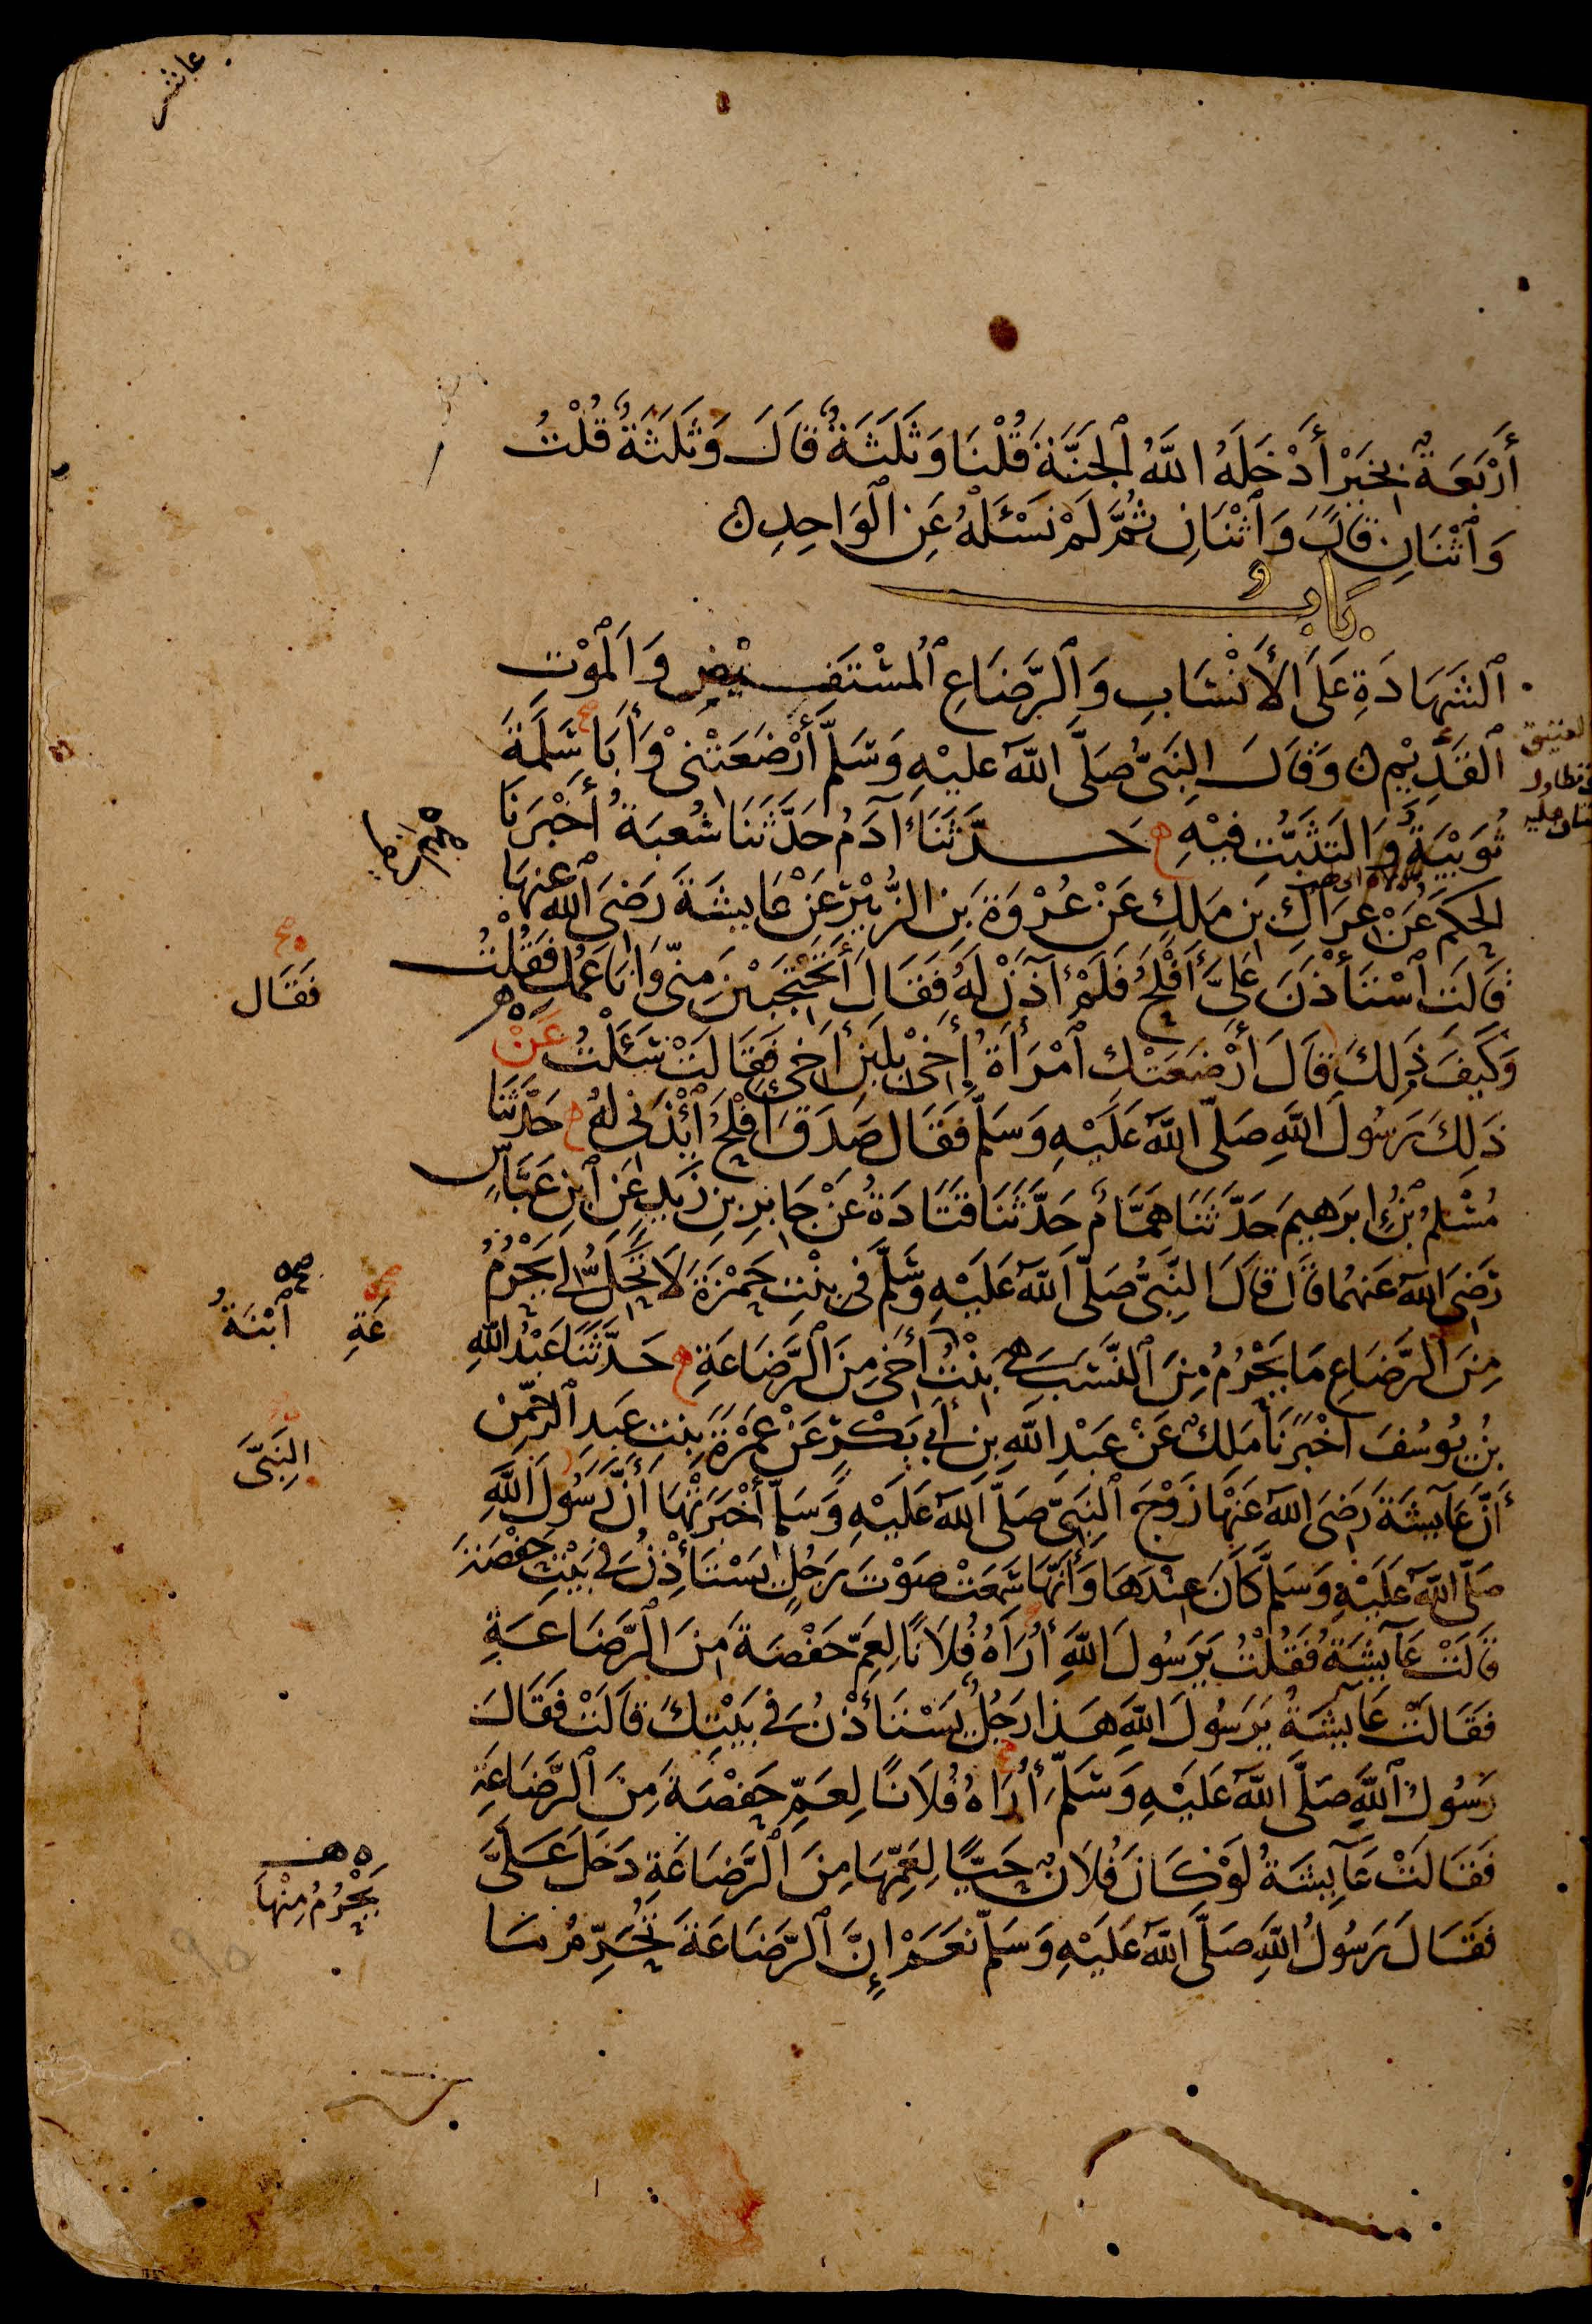 عاشر
أَرْبَعَةٌ بِخَيْرٍ أَدْخَلَهُ اللَّهُ ٱلْجَنَّةَ قُلْنَا وَثَلَثَةٌ قَالَ وَثَلَثَةٌ قُلْتُ
وَٱثْنَانِ قَالَ وَٱثْنَانِ ثُمَّ لَمْ نَسْئَلْهُ عَنِ ٱلْوَاحِدِ
بَابُ
ٱلشَّهَادَةِ عَلَى ٱلْأَنْسَابِ وَٱلرَّضَاعِ ٱلْمُسْتَفِيْضِ وَٱلْمَوْتِ
ٱلْقَدِيْمِ وَقَالَ النَّبِيُّ صَلَّى اللَّهُ عَلَيْهِ وَسَلَّمَ أَرْضَعَتْنِي وَأَبَا سَلَمَةَ
ثُوَيْبَةُ وَالتَّثَبُّتِ فِيْهِ حَدَّثَنَا آدَمُ حَدَّثَنَا شُعْبَةُ أَخْبَرَنَا
الْحَكَمُ عَنْ عِرَاكِ بْنِ مَلِكٍ عَنْ عُرْوَةَ بْنِ الزُّبَيْرِ عَنْ عَايِشَةَ رَضِيَ اللَّهُ عَنْهَا
قَالَتْ ٱسْتَأْذَنَ عَلَيَّ أَفْلَحُ فَلَمْ آذَنْ لَهُ فَقَالَ أَتَحْتَجِبِيْنَ مِنِّي وَأَنَا عَمُّكِ فَقُلْتُ
فَقَال
وَكَيْفَ ذَلِكَ قَالَ أَرْضَعَتْكِ ٱمْرَأَةُ أَخِي بِلَبَنِ أَخِي فَقَالَتْ سَئَلْتُ عَنْ
ذَلِكَ رَسُولَ اللَّهِ صَلَّى اللَّهُ عَلَيْهِ وَسَلَّمَ فَقَالَ صَدَقَ أَفْلَحُ ٱئْذَنِي لَهُ حَدَّثَنَا
مُسْلِمُ بْنُ إِبْرَهِيمَ حَدَّثَنَا هَمَّامٌ حَدَّثَنَا قَتَادَةُ عَنْ جَابِرِ بْنِ زَيْدٍ عَنِ ٱبْنِ عَبَّاسٍ
رَضِيَ اللَّهُ عَنْهُمَا قَالَ قَالَ النَّبِيُّ صَلَّى اللَّهُ عَلَيْهِ وَسَلَّمَ فِي بِنْتِ حَمْزَةَ لَا تَحِلُّ لِي يَحْرُمُ
عَةِ ٱبْنَةُ
مِنَ ٱلرَّضَاعِ مَا يَحْرُمُ مِنَ ٱلنَّسَبِ هِيَ بِنْتُ أَخِي مِنَ ٱلرَّضَاعَةِ حَدَّثَنَا عَبْدُ اللَّهِ
بْنُ يُوسُفَ أَخْبَرَنَا مَلِكٌ عَنْ عَبْدِ اللَّهِ بْنِ أَبِي بَكْرٍ عَنْ عَمْرَةَ بِنْتِ عَبْدِ الرَّحْمٰنِ
النَّبِيَّ
أَنَّ عَايِشَةَ رَضِيَ اللَّهُ عَنْهَا زَوْجَ ٱلنَّبِيِّ صَلَّى اللَّهُ عَلَيْهِ وَسَلَّمَ أَخْبَرَتْهَا أَنَّ رَسُولَ اللَّهِ
صَلَّى اللَّهُ عَلَيْهِ وَسَلَّمَ كَانَ عِنْدَهَا وَأَنَّهَا سَمِعَتْ صَوْتَ رَجُلٍ يَسْتَأْذِنُ فِي بَيْتِ حَفْصَةَ
قَالَتْ عَايِشَةُ فَقُلْتُ يَرَسُولَ اللَّهِ أُرَاهُ فُلَانًا لِعَمِّ حَفْصَةَ مِنَ ٱلرَّضَاعَةِ
فَقَالَتْ عَايِشَةُ يَرَسُولَ اللَّهِ هَذَا رَجُلٌ يَسْتَأْذِنُ فِي بَيْتِكَ قَالَتْ فَقَالَ
رَسُولُ ٱللَّهِ صَلَّى اللَّهُ عَلَيْهِ وَسَلَّمَ أُرَاهُ فُلَانًا لِعَمِّ حَفْصَةَ مِنَ ٱلرَّضَاعَةِ
فَقَالَتْ عَايِشَةُ لَوْ كَانَ فُلَانٌ حَيًّا لِعَمِّهَا مِنَ ٱلرَّضَاعَةِ دَخَلَ عَلَيَّ
يَحْرُمُ مِنْهَا
فَقَالَ رَسُولُ اللَّهِ صَلَّى اللَّهُ عَلَيْهِ وَسَلَّمَ نَعَمْ إِنَّ ٱلرَّضَاعَةَ تُحَرِّمُ مَا